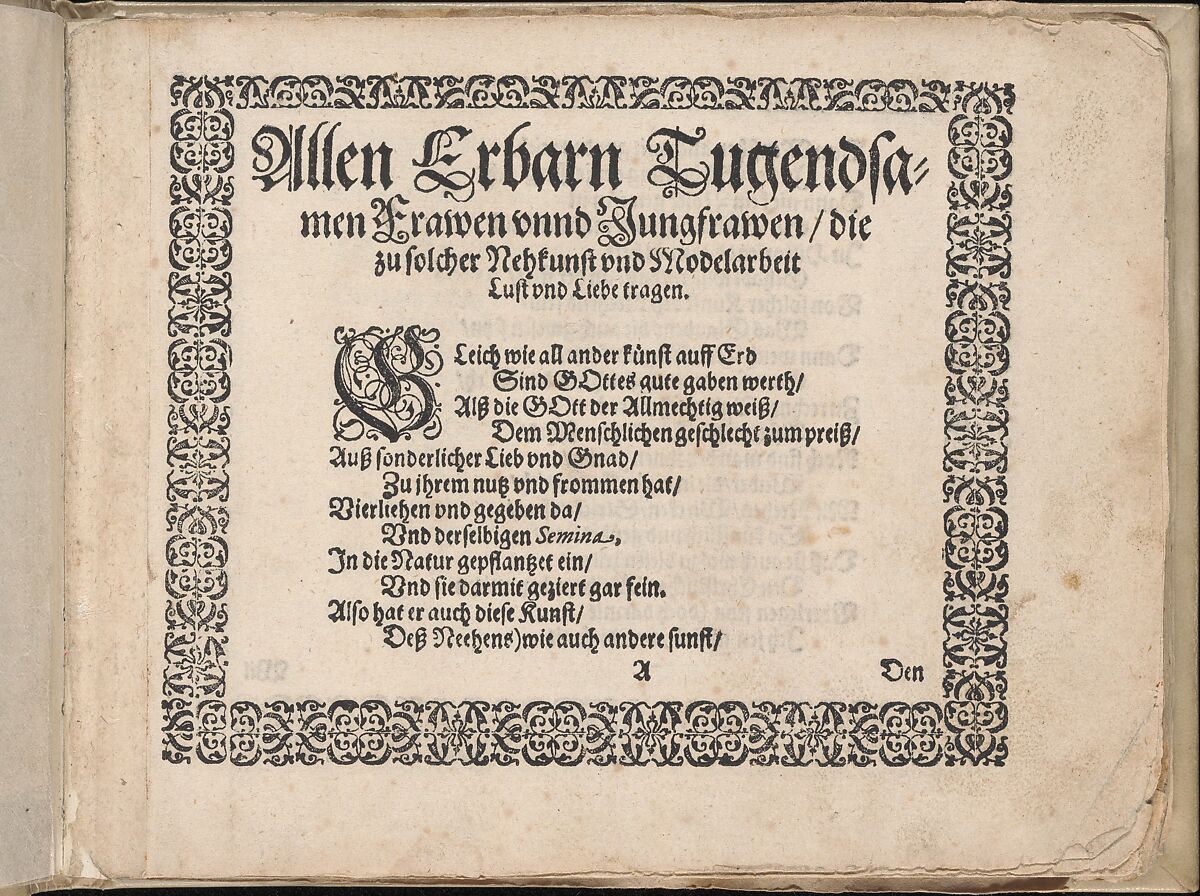 Allen Erbarn Tugendsa-
men Frawen vnnd Jungfrawen / die
zu solcher Nehkunst vnd Modelarbeit
Lust vnd Liebe tragen.
GLeich wie all ander künst auff Erd
Sind GOttes gute gaben werth/
Alß die GOtt der Allmechtig weiß/
Dem Menschlichen geschlecht zum preiß/
Auß sonderlicher Lieb vnd Gnad/
Zu jhrem nutz vnd frommen hat/
Vierliehen vnd gegeben da/
Vnd derselbigen Semina,
In die Natur gepflantzet ein/
Vnd sie darmit geziert gar fein.
Also hat er auch diese Kunst/
Deß Neehens) wie auch andere sunst/
A
Den